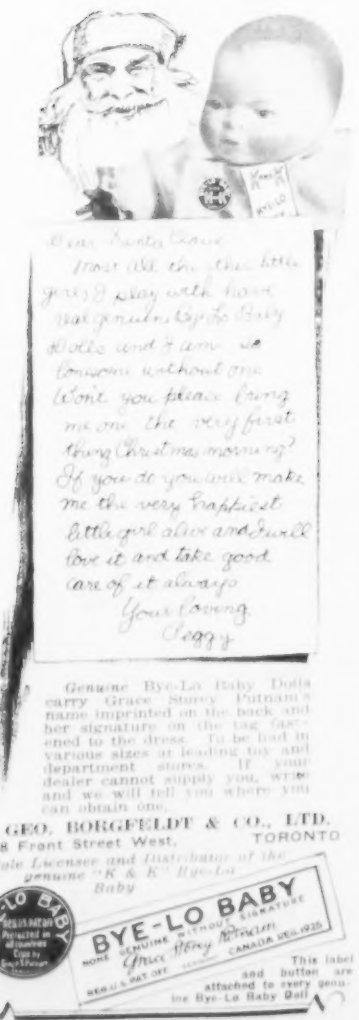 K and K
BYE-LO
Dear Santa Claus
Most all the other little
girls I play with have
real genuine Bye-Lo Baby
Dolls and I am so
lonesome without one
Won't you please bring
me one the very first
thing Christmas morning?
If you do you will make
me the very happiest
little girl alive and I will
love it and take good
care of it always
Your Loving
Peggy
Genuine Bye-Lo Baby Dolls
carry Grace Storey Putnam's
name imprinted on the back and
her signature on the tag fast-
ened to the dress. To be had in
various sizes at leading toy and
department stores. If your
dealer cannot supply you, write
and we will tell you where you
can obtain one.
GEO. BORGFELDT & CO., LTD.
8 Front Street West, TORONTO
ole Licensee and Distributor of the
genuine "K & K" Bye-Lo
Baby
-LO BABY
REG.U.S.PAT.OFF
Protected in
all countries
Copr. by
Grace S. Putnam
BYE-LO BABY
NONE GENUINE WITHOUT SIGNATURE
Grace Storey Putnam
REG. U.S. PAT. OFF. CANADA REG. 1925
This label
and button are
attached to every genu-
ine Bye-Lo Baby Doll